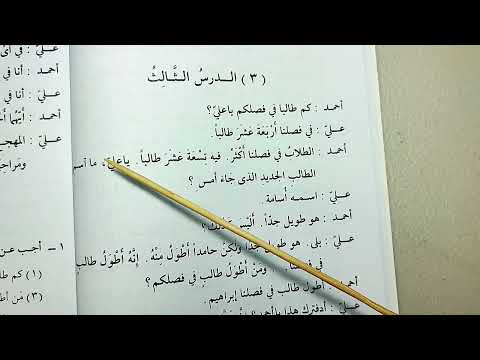 (٣) الـدرسُ الثَّـالِـثُ
أحمد : كم طالبا في فصلكم ياعليّ؟
عـلـيّ : في فصلنا أَرْبَعَةَ عَشَرَ طالباً.
أحمد : الطلابُ في فصلنا أَكْثَرُ. فيه تِسْعَةَ عَشَرَ طالباً. ياعليّ، ما اسم
الطالب الجديد الذى جَاءَ أمس ؟
عـلـيّ : اسمـه أُسامة.
أحمد : هو طويل جدّاً. أَلَيْسَ كَذلك؟
عـلـيّ : بلى. هو طويل جدّاً ولكنّ حامداً أَطْوَلُ مِنْهُ. إِنَّهُ أَطْوَلُ طالبٍ
في فصلنا. ومَنْ أَطْوَلُ طالبٍ في فصلكم؟
أحمد : أطولُ طالب في فصلنا إبراهيم.
عـلـيّ : أدفترك هذا ياأحمد؟
عـلـيّ : في
أحمد : أنا في
عـلـيّ : أنا في
أحمد : أَيُّهُما
عـلـيّ : المهجع
ومَراحِ
١ – أجب عـن
(١) كم طا
(٣) مَن أطو